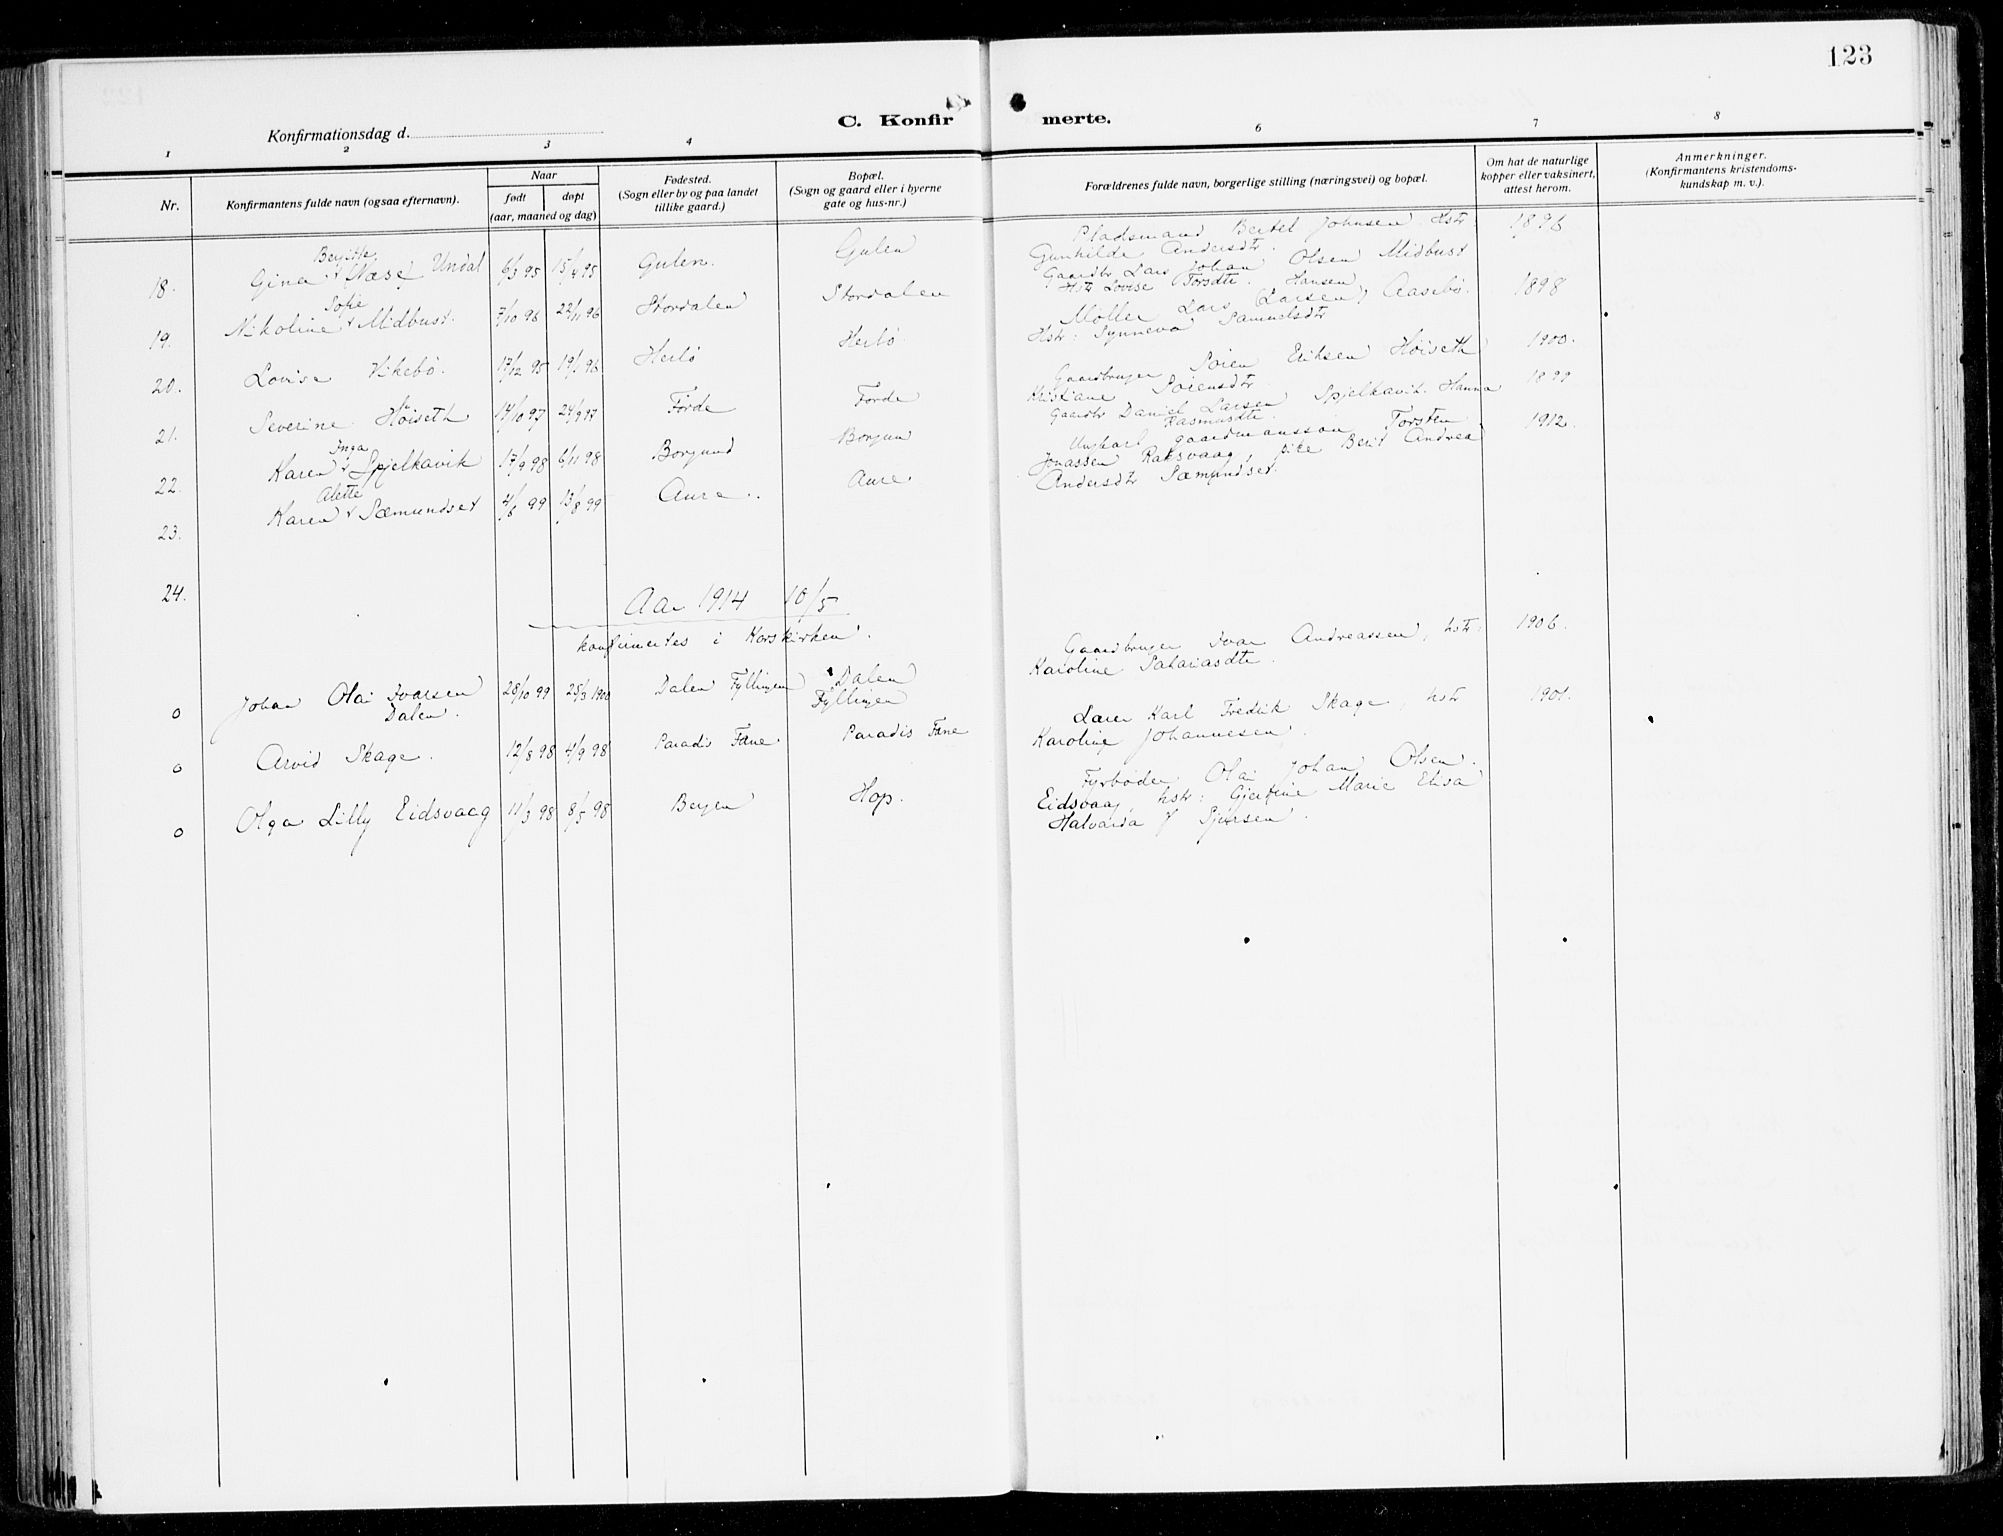 123
Konfirmationsdag d.
C. Konfir merte.
1 2 3 4 6 7 8
Nr.
Konfirmantens fulde navn (ogsaa efternavn).
Naar
født døpt
(aar, maaned og dag)
Fødested.
(Sogn eller by og paa landet
tillike gaard.)
Bopæl.
(Sogn og gaard eller i byerne
gate og hus-nr.)
Forældrenes fulde navn, borgerlige stilling (næringsvei) og bopæl.
Om hat de naturlige
kopper eller vaksinert,
attest herom.
Anmerkninger.
(Konfirmantens kristendoms-
kundskap m. v.).
Pladsmand Bertel Johnsen Hstr: 1896
Gunhilde Andersdtr.
18. Gina Næse Undal 6/3 95 15/4 95 Gulen. Gulen
Gaardbr Lars Johan Olsen Midbust
Hstr Lovise Torsdtr. Hansen
Sofie
19. Nikoline Midbust. 7/10 96 22/11 96 Stordalen Stordalen 1898
Møller Lars (Larsen) Aasebø.
Hstr: Synneva Samuelsdtr
20. Lovise Vikebø. 17/12 95 19/1 96 Herlø Herlø 1900.
Gaardbruger Søren Eriksen Høiseth
Kristiane Sørensdtr
21. Severine Høiseth 14/10 97 24/9 97 Førde Førde 1899
Gaardbr Daniel Larsen Spjelkavik. Hanna
Rasmusdtr.
Inga
22. Karen Spjelkavik 17/9 98 6/11 98 Borgund Borgun 1912.
Ungkarl gaardmanssøn Torsten
Jonassen Raksvaag, pike Berit Andrea
Andersdtr Sæmundset.
Alette
23. Karen Sæmundset 4/6 99 13/8 99 Aure. Aure
24.
Aar 1914 10/5
konfirmertes i Korskirken.
Gaardbruger Ivar Andreassen, hstr: 1906.
Karoline Sakariasdtr.
0 Johan Olai Ivarsen 28/10 99 25/3 1900 Dalen Fyllingen Dalen
Dalen. Fyllingen
Lærer Karl Fredrik Skage, hstr 1901.
Karoline Johannesen.
0 Arvid Skage. 12/8 98 4/9 98 Paradis Fane. Paradis Fane
Fyrbøder Olai Johan Olsen.
Eidsvaag, hstr: Gjertine Marie Elisa
Halvarda Sjursen.
0 Olga Lilly Eidsvaag 11/3 98 8/5 98 Bergen Hop.